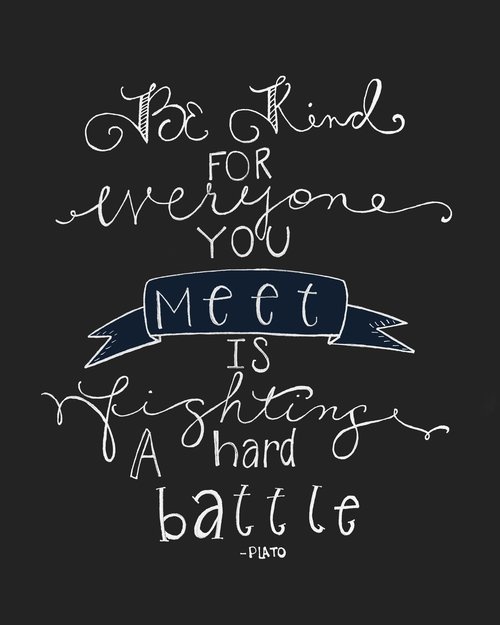 Be Kind
FOR
everyone
YOU
Meet
IS
Fighting
A hard
battle
-PLATO